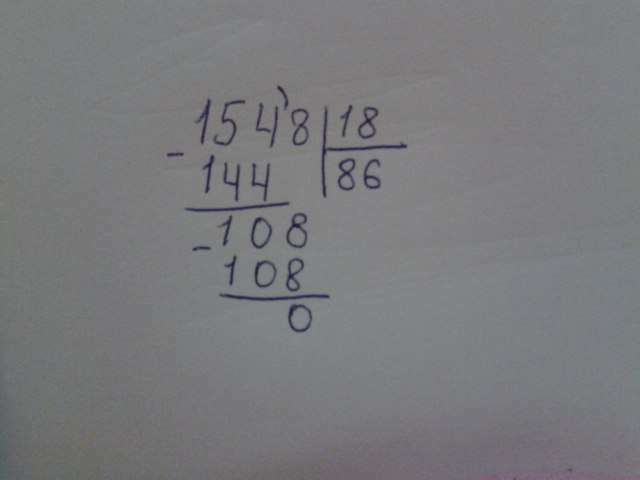 1548 | 18
- 144 | 86
- 108
108
0